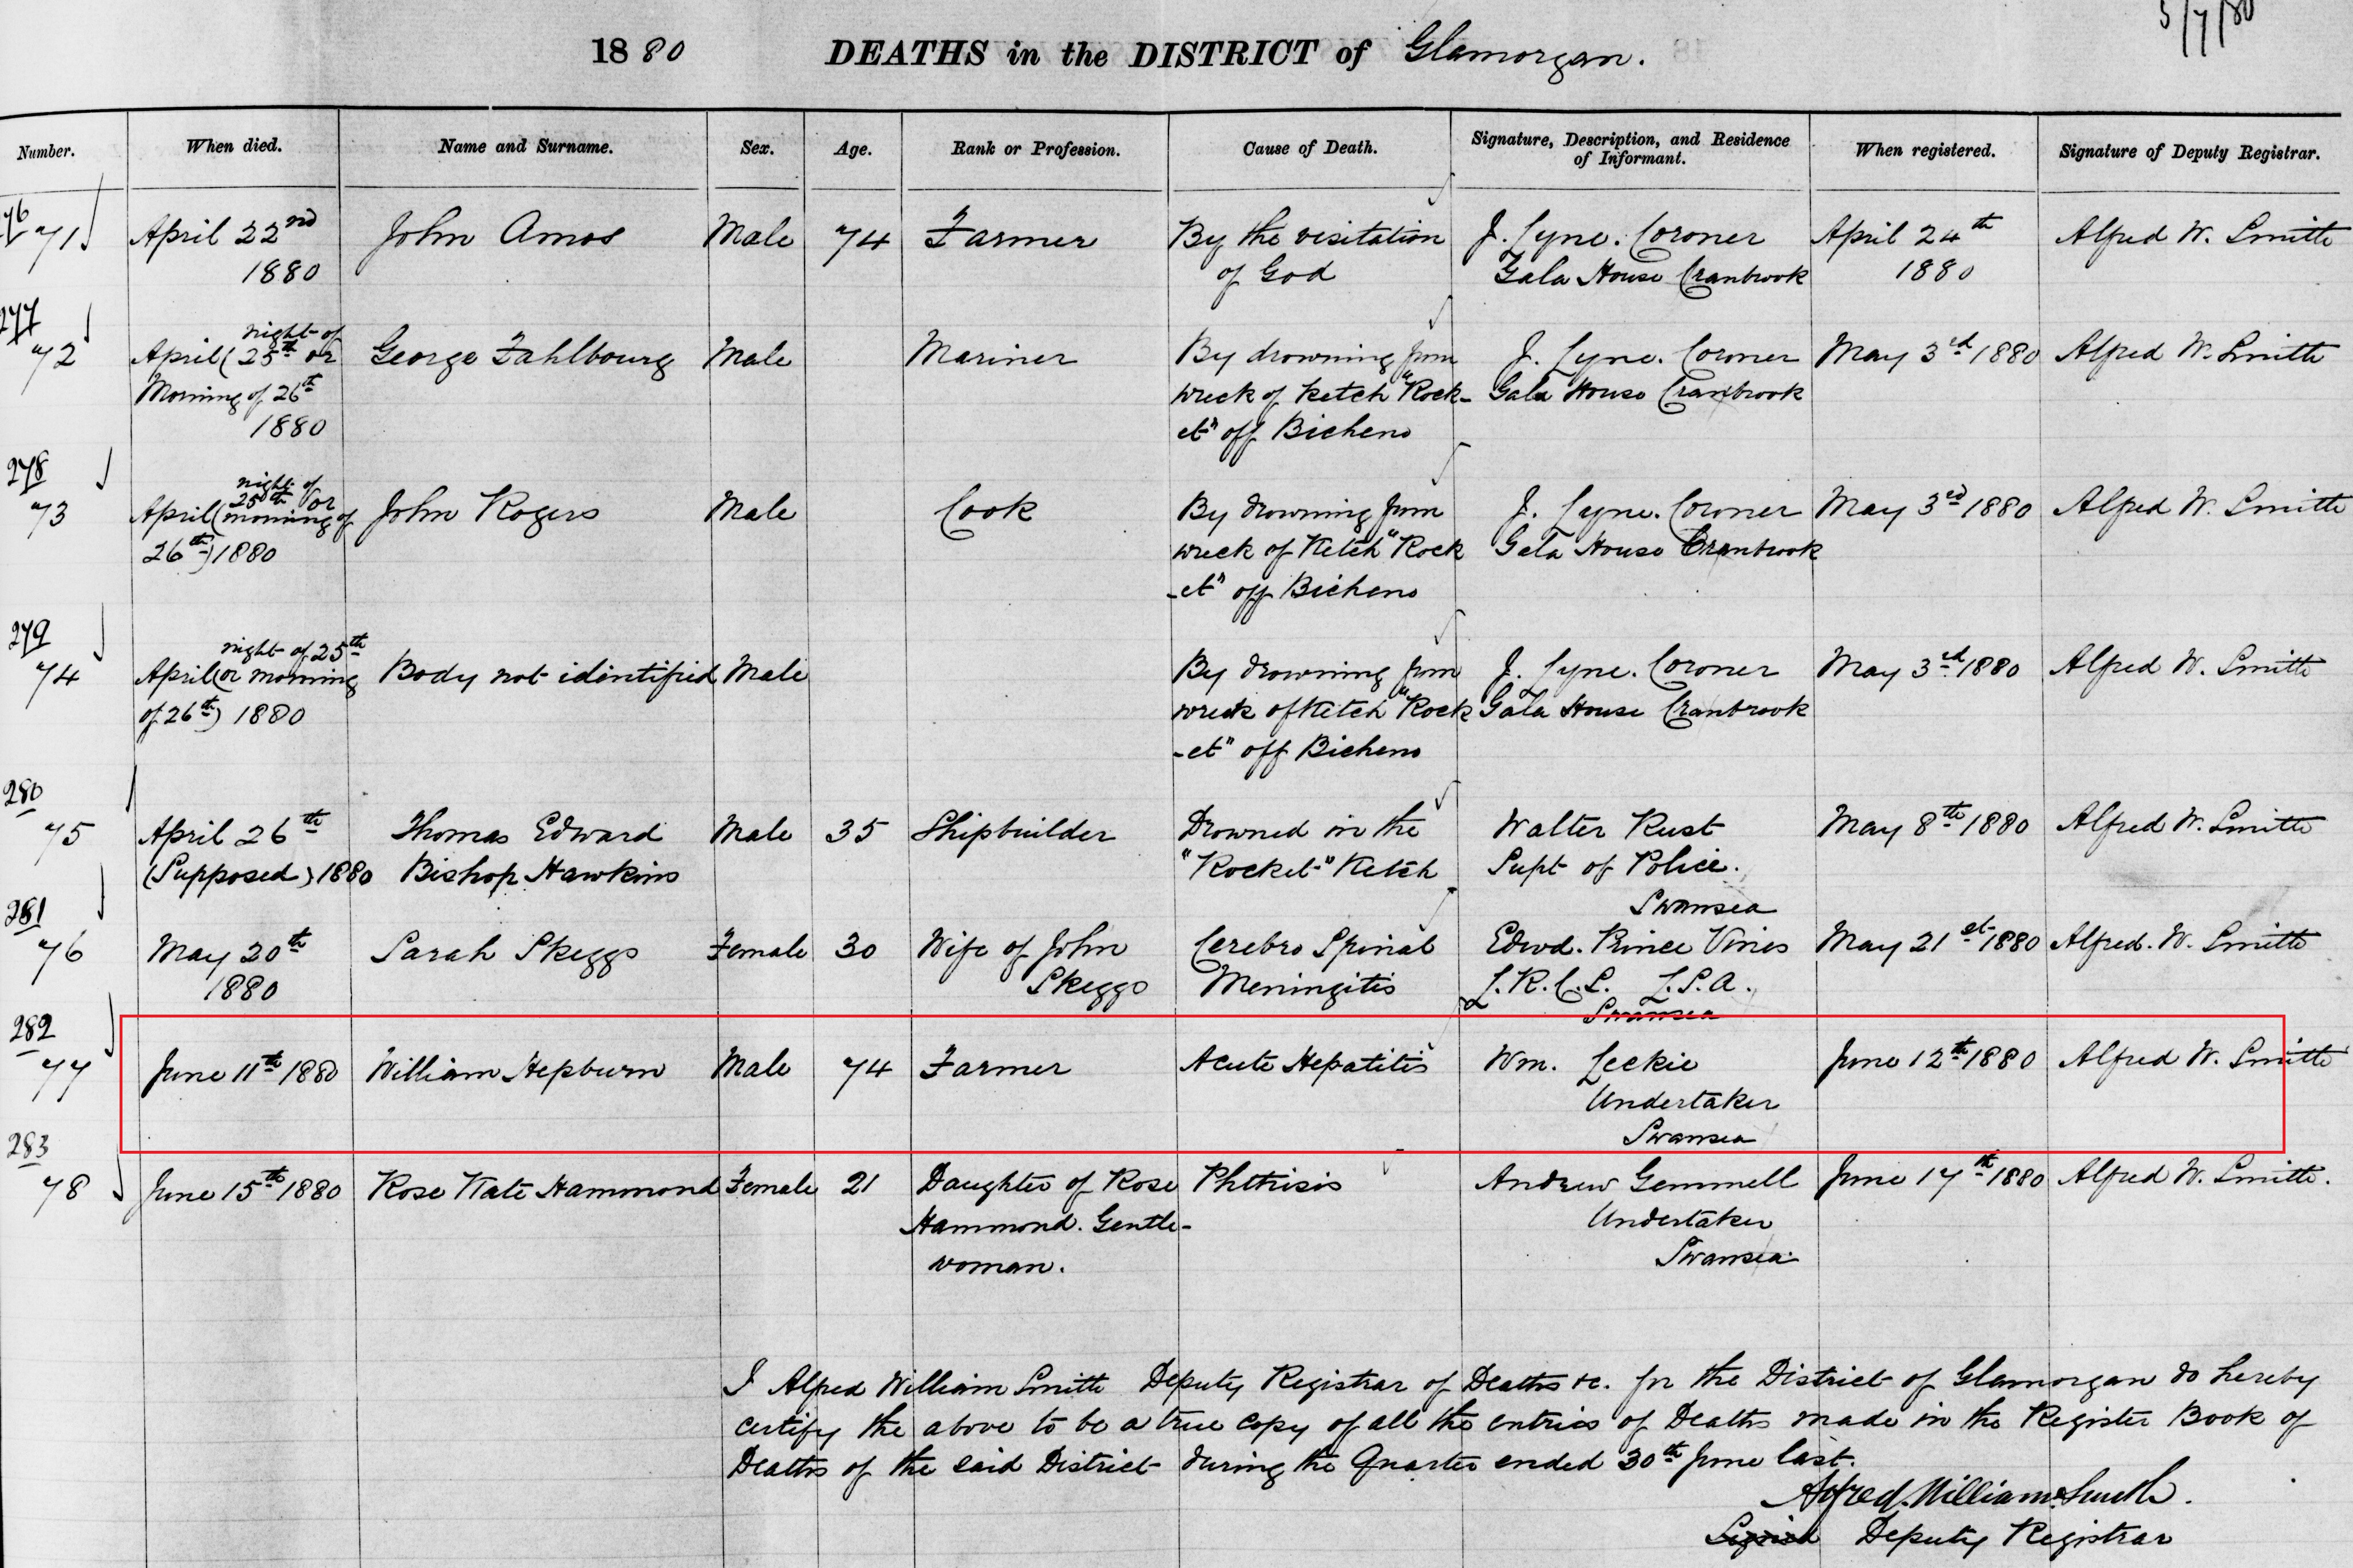 5/7/80
1880 DEATHS in the DISTRICT of Glamorgan.
Number. When died. Name and Surname. Sex. Age. Rank or Profession. Cause of Death. Signature, Description, and Residence of Informant. When registered. Signature of Deputy Registrar.
276
71 April 22nd John Amos Male 74 Farmer By the visitation J. Lyne. Coroner April 24th Alfred W. Smith
1880 of God Gala House Cranbrook 1880
277 night of
72 April (25th or George Fahlbourg Male Mariner By drowning from J. Lyne. Coroner May 3rd 1880 Alfred W. Smith
Morning of 26th wreck of Ketch "Rock- Gala House Cranbrook
1880 et" off Bicheno
278 night of
25th or
73 April (morning of John Rogers Male Cook By drowning from J. Lyne. Coroner May 3rd 1880 Alfred W. Smith
26th) 1880 wreck of Ketch "Rock Gala House Cranbrook
-et" off Bicheno
279 night of 25th
74 April (or morning Body not identified Male By drowning from J. Lyne. Coroner May 3rd 1880 Alfred W. Smith
of 26th) 1880 wreck of Ketch "Rock Gala House Cranbrook
-et" off Bicheno
280
75 April 26th Thomas Edward Male 35 Shipbuilder Drowned in the Walter Rust May 8th 1880 Alfred W. Smith
(Supposed) 1880 Bishop Hawkins "Rocket" Ketch Supt of Police.
281 Swansea
76 May 20th Sarah Skeggs Female 30 Wife of John Cerebro Spinal Edwd. Prince Vines May 21st 1880 Alfred. W. Smith
1880 Skeggs Meningitis L.R.C.S. L.S.A.
282 Swansea
77 June 11th 1880 William Hepburn Male 74 Farmer Acute Hepatitis Wm. Leckie June 12th 1880 Alfred W. Smith
Undertaker
283 Swansea
78 June 15th 1880 Rose Kate Hammond Female 21 Daughter of Rose Phthisis Andrew Gemmell June 17th 1880 Alfred W. Smith.
Hammond. Gentle- Undertaker
woman. Swansea
I Alfred William Smith Deputy Registrar of Deaths &c. for the District of Glamorgan do hereby
certify the above to be a true copy of all the entries of Deaths made in the Register Book of
Deaths of the said District during the Quarter ended 30th June last.
Alfred William Smith.
Deputy Registrar